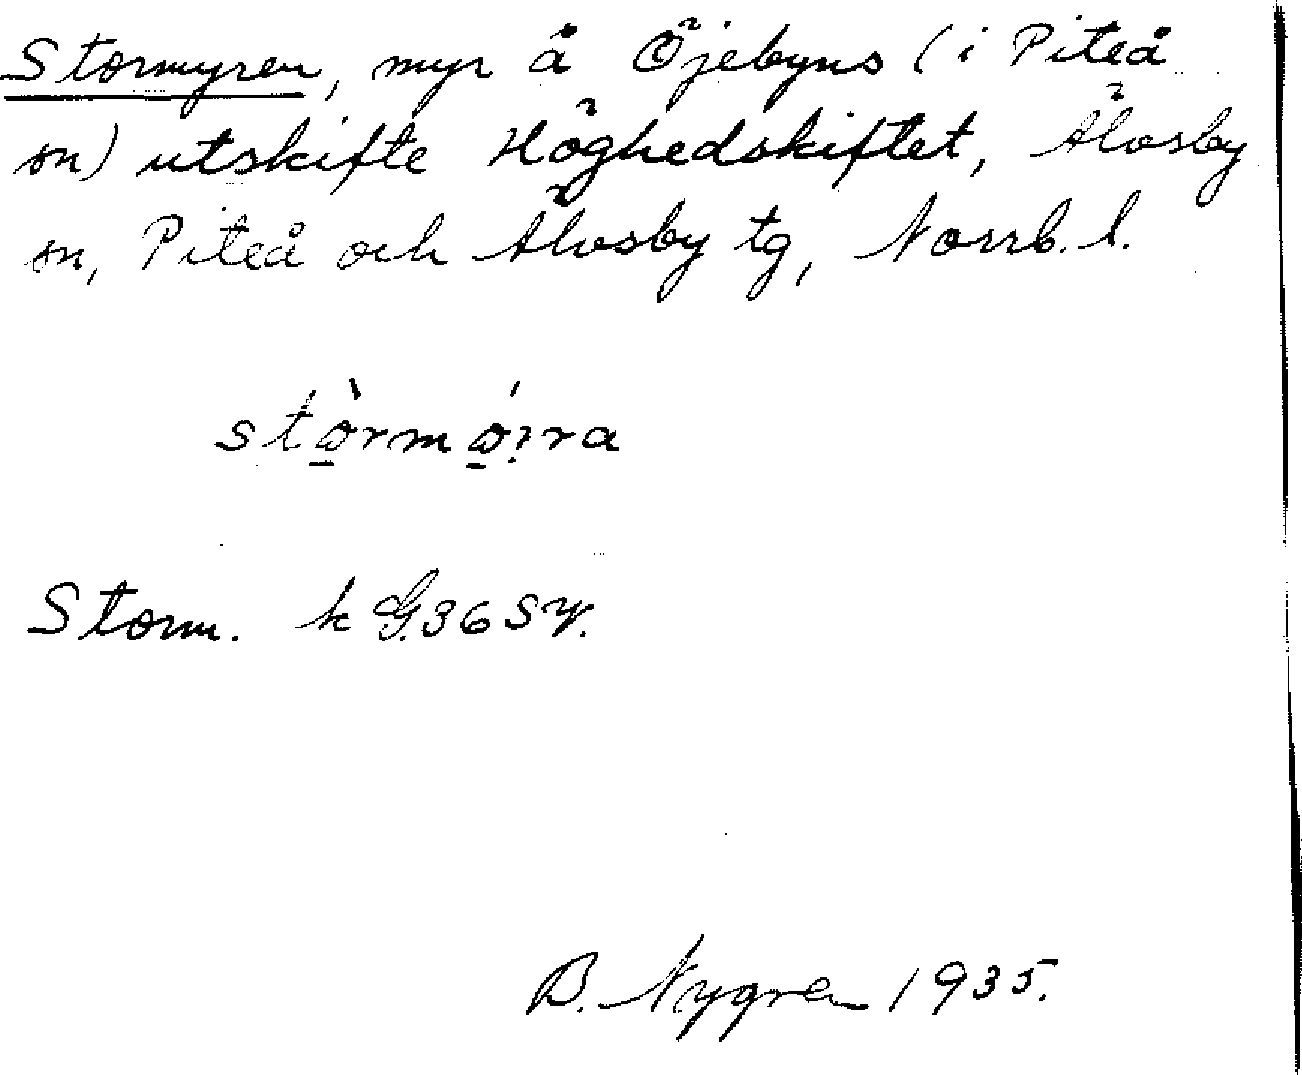 Stormyren, myr å Öjebyns (i Piteå
sn) utskifte Höghedskiftet, Älvsby
sn, Piteå och Älvsby tg, Norrb. l.
Storm. k G.36 SV.
B. Nygren 1935.